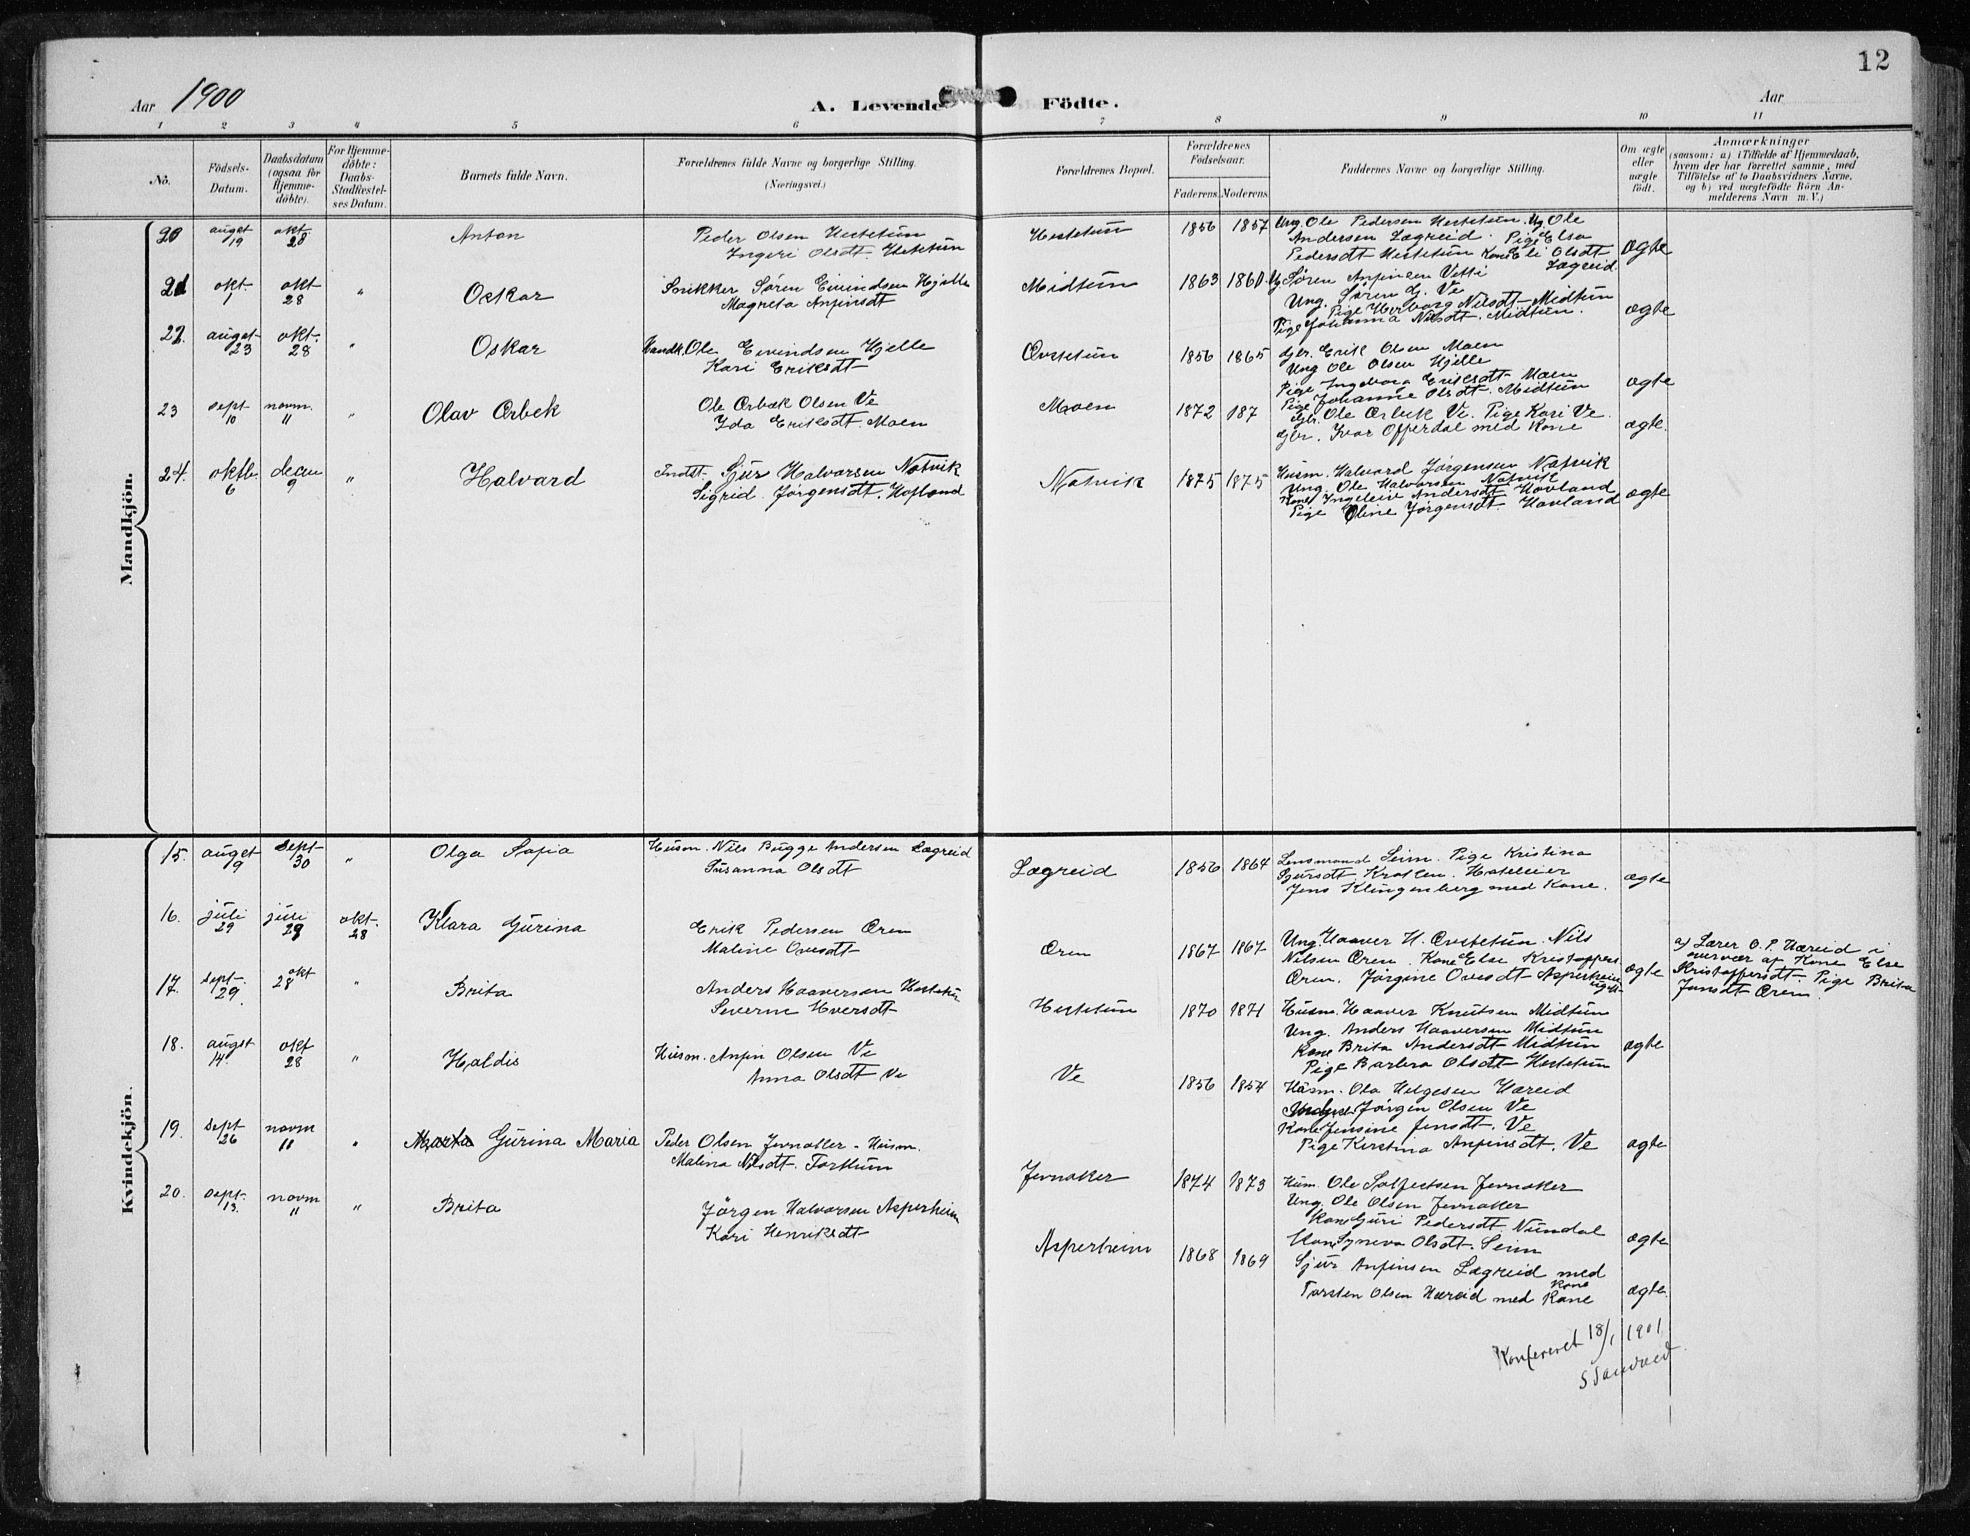 12
Aar 1900
A. Levende Födte.
Aar
1 2 3 4 5 6 7 8 9 10 11
No.
Födsels-Datum.
Daabsdatum (ogsaa for Hjemme-döbte).
For Hjemme-döbte: Daabs-Stadfæstel-ses Datum.
Barnets fulde Navn.
Forældrenes fulde Navne og borgerlige Stilling.
(Næringsvei.)
Forældrenes Bopæl.
Forældrenes Födselsaar.
Faderens. Moderens.
Faddernes Navne og borgerlige Stilling.
Om ægte eller uægte födt.
Anmærkninger
(saasom: a) i Tilfælde af Hjemmedaab,
hvem der har forrettet samme, med
Tilföielse af to Daabsvidners Navne,
og b) ved uægtefödte Börn An-
melderens Navn m. V.)
Mandkjön.
20 auget 19 okt 28 Anton
Peder Olsen Hestetun
Ingeri Olsdt. Hestetun
Hestetun 1856 1857
Ung. Ole Pedersen Hestetun. Ug Ole
Andersen Lægreid. Pige Elsa
Pedersdt Hestetun Kone Eli Olsdt
Lægreid
ægte
21 okt 1 okt 28 " Oskar
Søren Eivindsen Hjelle
Magreta Anfinsdt
Midtun 1863 1860
Ug Søren Anfinsen Vetti
Ung. Søren G. Ve
Pige Herborg Nilsdt Midtun
Pige Johanna Nilsdt. Midtun.
ægte
22. auget 23 okt. 28 " Oskar
Handk. Ole Eivindsen Hjelle
Kari Eriksdt
Øvstetun 1856 1865
Gbr. Erik Olsen Moen
Ung Ole Olsen Hjelle
Pige Ingeborg Eriksdt Moen
Pige Johanne Olsdt. Midtun
ægte
23 sept 10 novm. 11 " Olav Ørbek
Ole Ørbæk Olsen Ve
Ida Eriksdt. Moen
Moen 1872 187
Gbr. Ole Ørbæk Ve. Pige Kari Ve.
Gbr. Ivar Offerdal med Kone
ægte.
24. oktb. 6 decm 9 " Halvard
Indst. Sjur Halvorsen Natvik
Sigrid Jørgensdt. Hofland
Natvik 1875 1875
Husm. Halvard Jørgensen Natvik
Ung. Ole Halvorsen Natvik
Kone Ingeleiv Andersdt Hovland
Pige Oline Jørgensdt. Hovland
ægte
Kvindekjön.
15. auget 9 sept 30 " Olga Sofia
Husm. Nils Bugge Andersen Lægreid
Susanna Olsdt
Lægreid 1856 1864
Lensmand Seim. Pige Kristina
Sjursdt. Hoteleier
Jens Klingenberg med Kone.
ægte
16. juli 29 juli 29 okt. 28 Klara Gurina
Erik Pedersen Øren
Maline Ovesdt
Øren 1867 1867
Ung. Haaver H. Øvstetun. Nils
Nilsen Øren. Kone Else Kristoffersdt
Øren. Jørgine Ovesdt Asperheim
ægte
a) Lærer O. P. Hæreid i
overvær af Kone Else
Kristoffersdt Pige Brita
Jensdt Øren.
17. sept. 29. okt 28 " Brita
Anders Haaversen Hestetun
Severine Iversdt
Hestetun 1870 1871
Husm. Haaver Knutsen Midtun
Ung. Anders Haaversen Midtun
Kone Brita Andersdt Midtun
Pige Barbra Olsdt Hestetun
ægte
18. auget 14. okt 28 " Haldis
Husm. Anfin Olsen Ve
Anna Olsdt Ve
Ve 1856 1854
Husm. Ola Helgesen Hæreid
Jørgen Olsen Ve
Kone Jensine Jensdt. Ve
Pige Kirstina Anfinsdt. Ve
ægte
19. sept 26 novm 11 " Marta Gurina Maria
Peder Olsen Jernaker Husm.
Malina Nilsdt.
Jernaker 1874 1873
Hum. Ole Jernaker
Ung. Ole Olsen Jernaker
Kone Guri Pedersdt. Nundal
Kone Syneva Olsdt. Seim
ægte
20. sept. 13. novm 11 " Brita
Jørgen Halvorsen Asperheim
Kari Henriksdt
Asperheim 1868 1869
Sjur Anfinsen Lægreid med
Kone
Torsten Olsen Hæreid med Kone
ægte.
Konfereret 18/1 1901